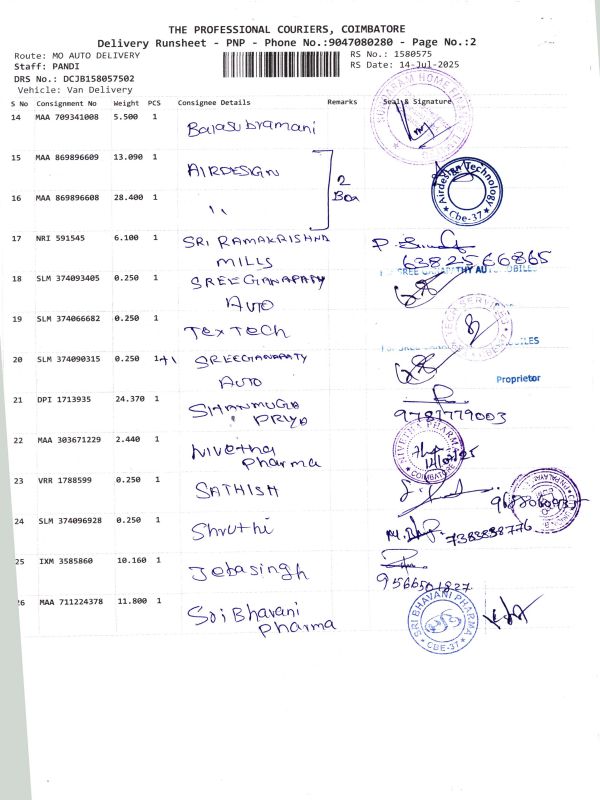 THE PROFESSIONAL COURIERS, COIMBATORE
Delivery Runsheet - PNP - Phone No.:9047080280 - Page No.:2
Route: MO AUTO DELIVERY RS No.: 1580575
Staff: PANDI RS Date: 14-Jul-2025
DRS No.: DCJB158057502
Vehicle: Van Delivery
S No Consignment No Weight PCS Consignee Details Remarks Seal & Signature
14 MAA 709341008 5.500 1 Balasubramani
15 MAA 869896609 13.090 1 AIRDESIGN
2 Box
16 MAA 869896608 28.400 1 ,,
Airdesign Technology
Cbe-37
17 NRI 591545 6.100 1 SRI RAMAKRISHNA
MILLS 6382566865
18 SLM 374093405 0.250 1 SREEGANAPATY
AUTO
19 SLM 374066682 0.250 1 TexTech
20 SLM 374090315 0.250 1+1 SREEGANAPATY
AUTO Proprietor
21 DPI 1713935 24.370 1 SHANMUGA
PRIYA 9781779003
22 MAA 303671229 2.440 1 Nivetha
Pharma
23 VRR 1788599 0.250 1 SATHISH
24 SLM 374096928 0.250 1 Shruthi 7383838776
25 IXM 3585860 10.160 1 Jebasingh
9566501827
26 MAA 711224378 11.800 1 Sri Bhavani
Pharma
SRI BHAVANI PHARMA
CBE-37